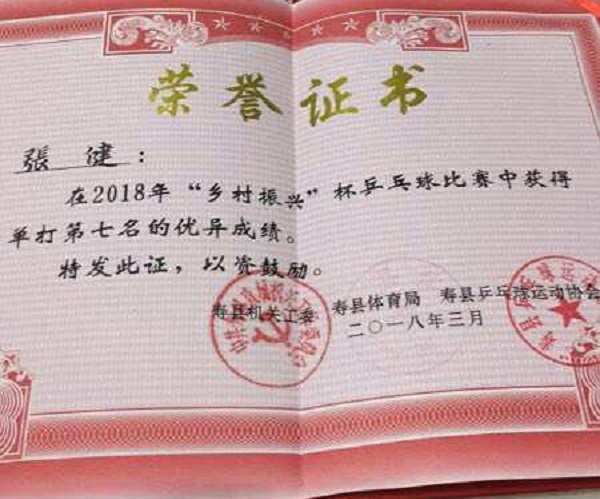 荣誉证书
張健：
在2018年“乡村振兴”杯乒乓球比赛中获得
单打第七名的优异成绩。
特发此证，以资鼓励。
寿县机关工委 寿县体育局 寿县乒乓球运动协会
二〇一八年三月